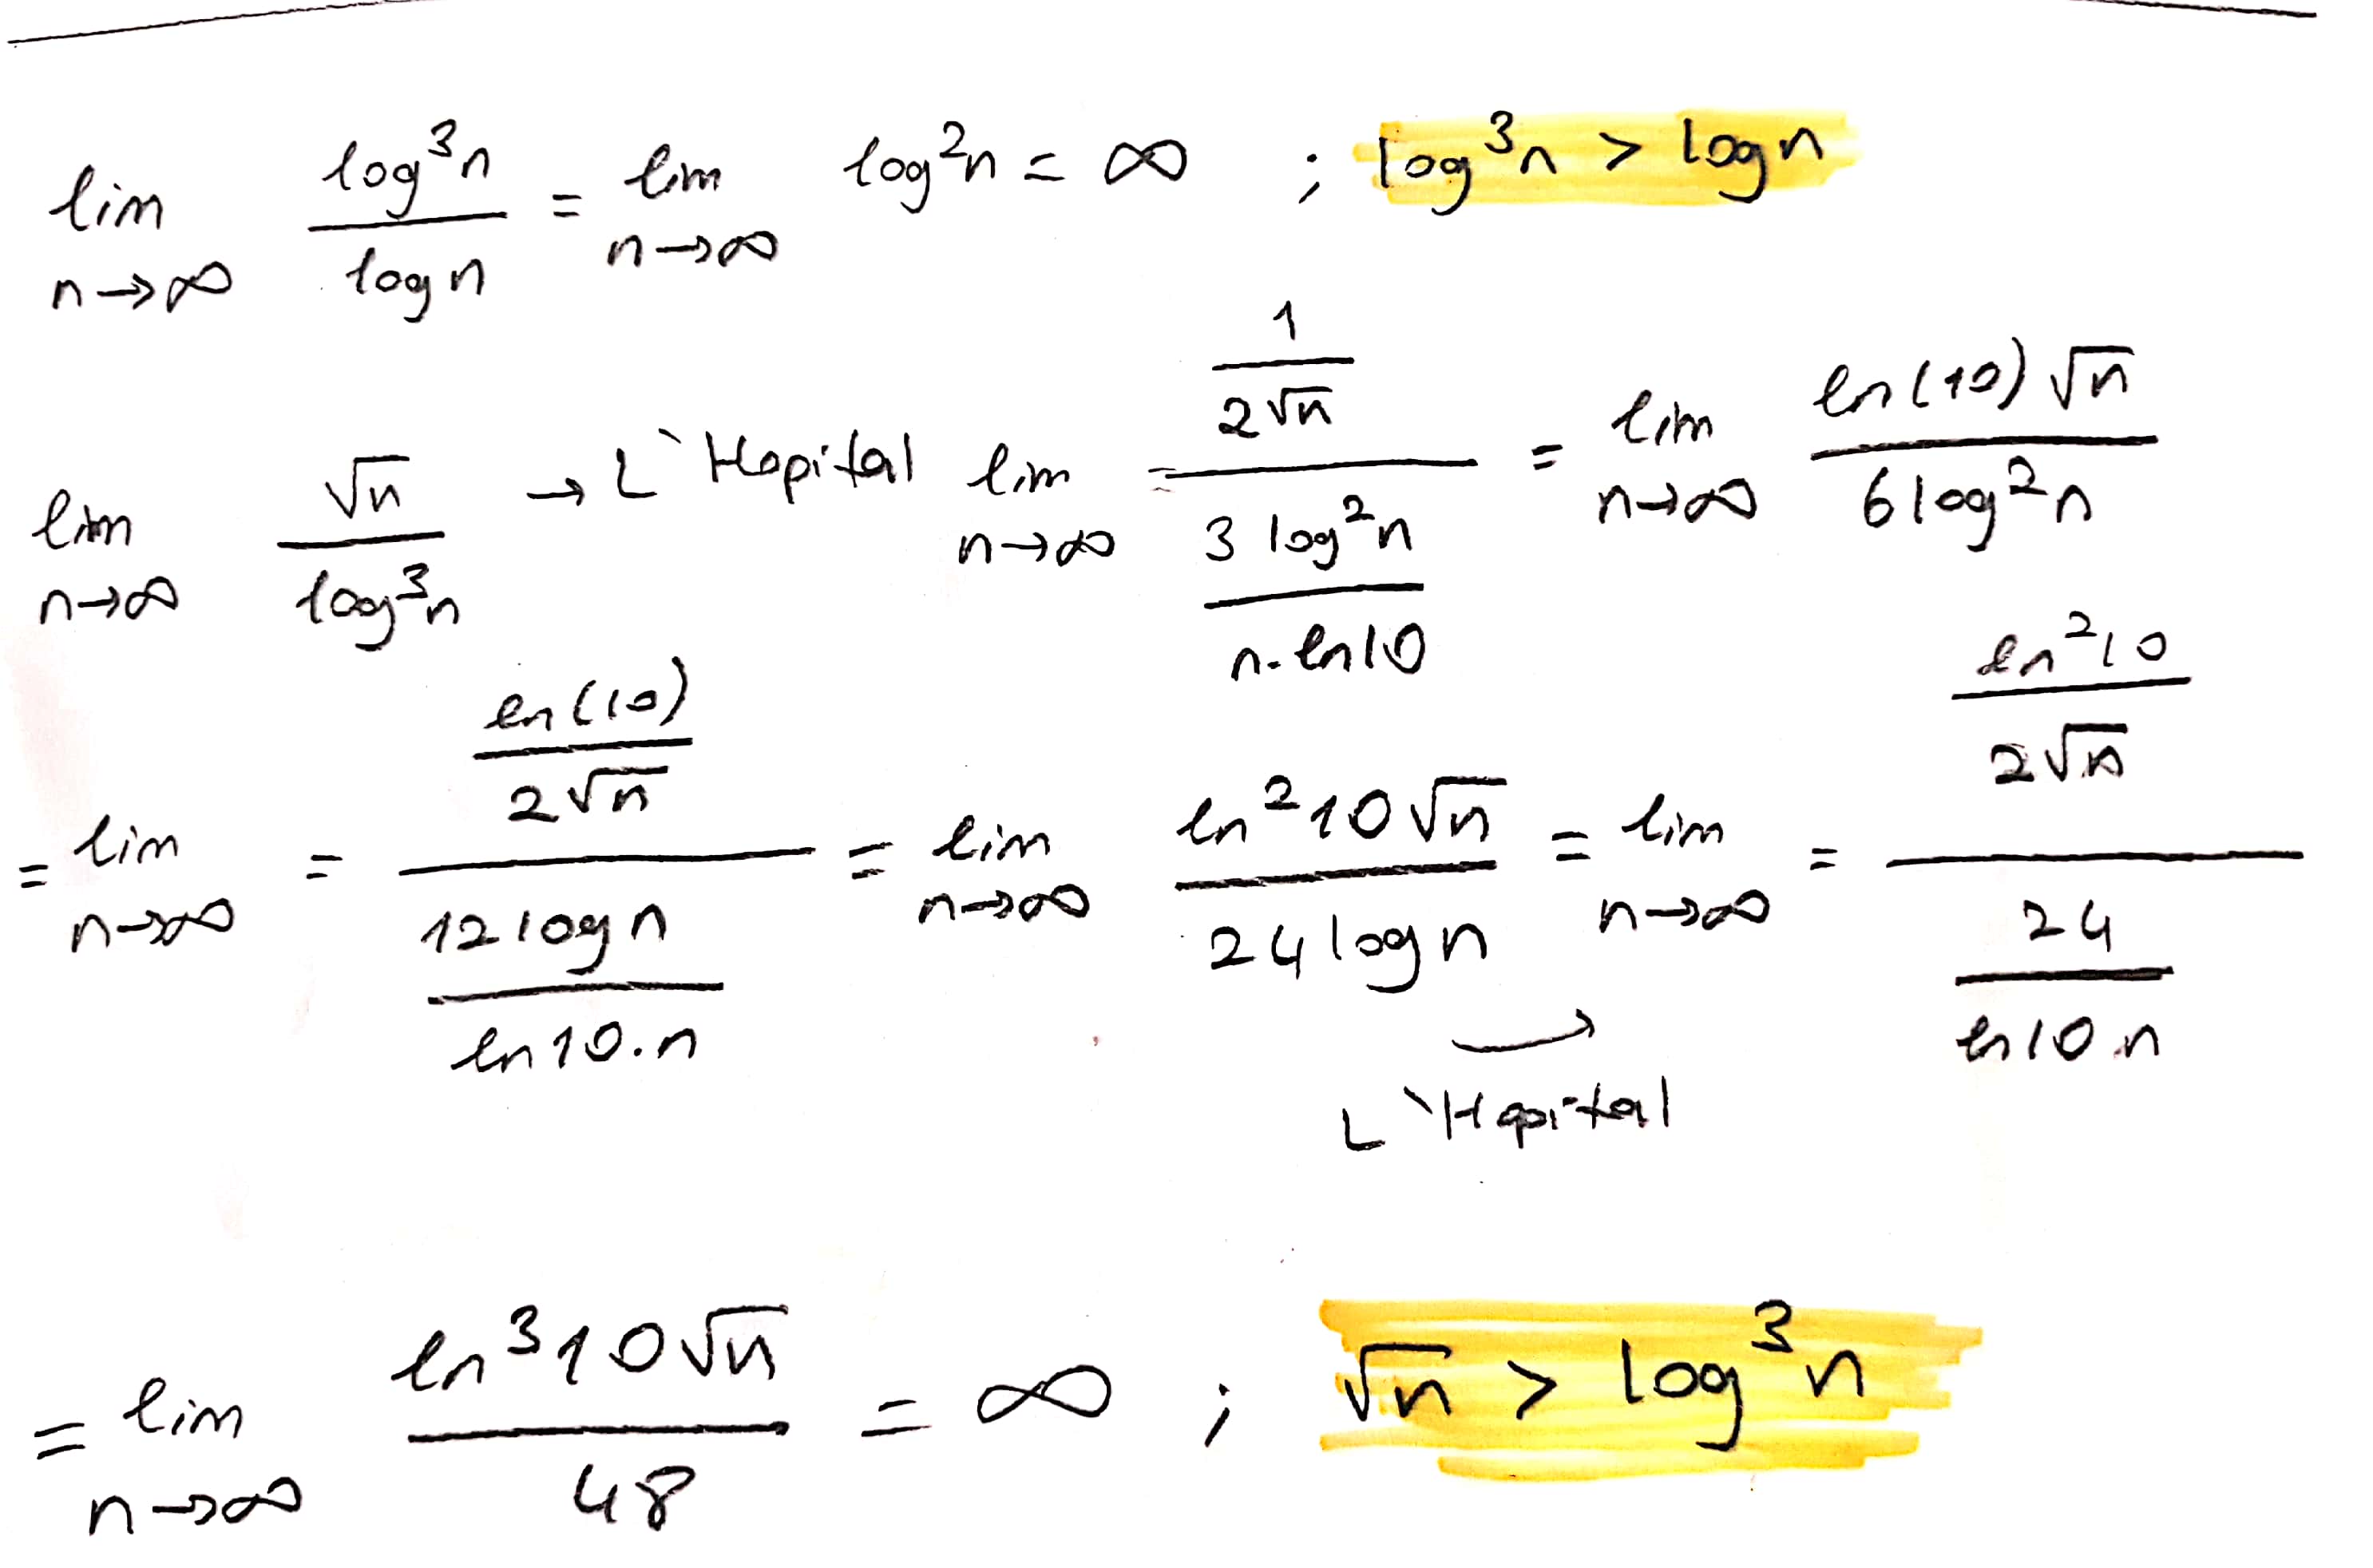 lim n→∞ log³n / logn = lim n→∞ log²n = ∞ ; log³n > logn
lim n→∞ √n / log³n → L'Hopital lim n→∞ = (1 / 2√n) / (3 log²n / n.ln10) = lim n→∞ ln(10) √n / 6log²n
= lim n→∞ = (ln(10) / 2√n) / (12logn / ln10.n) = lim n→∞ ln²10√n / 24logn = lim n→∞ = (ln²10 / 2√n) / (24 / ln10.n)
L'Hopital
= lim n→∞ ln³10√n / 48 = ∞ ; √n > log³n